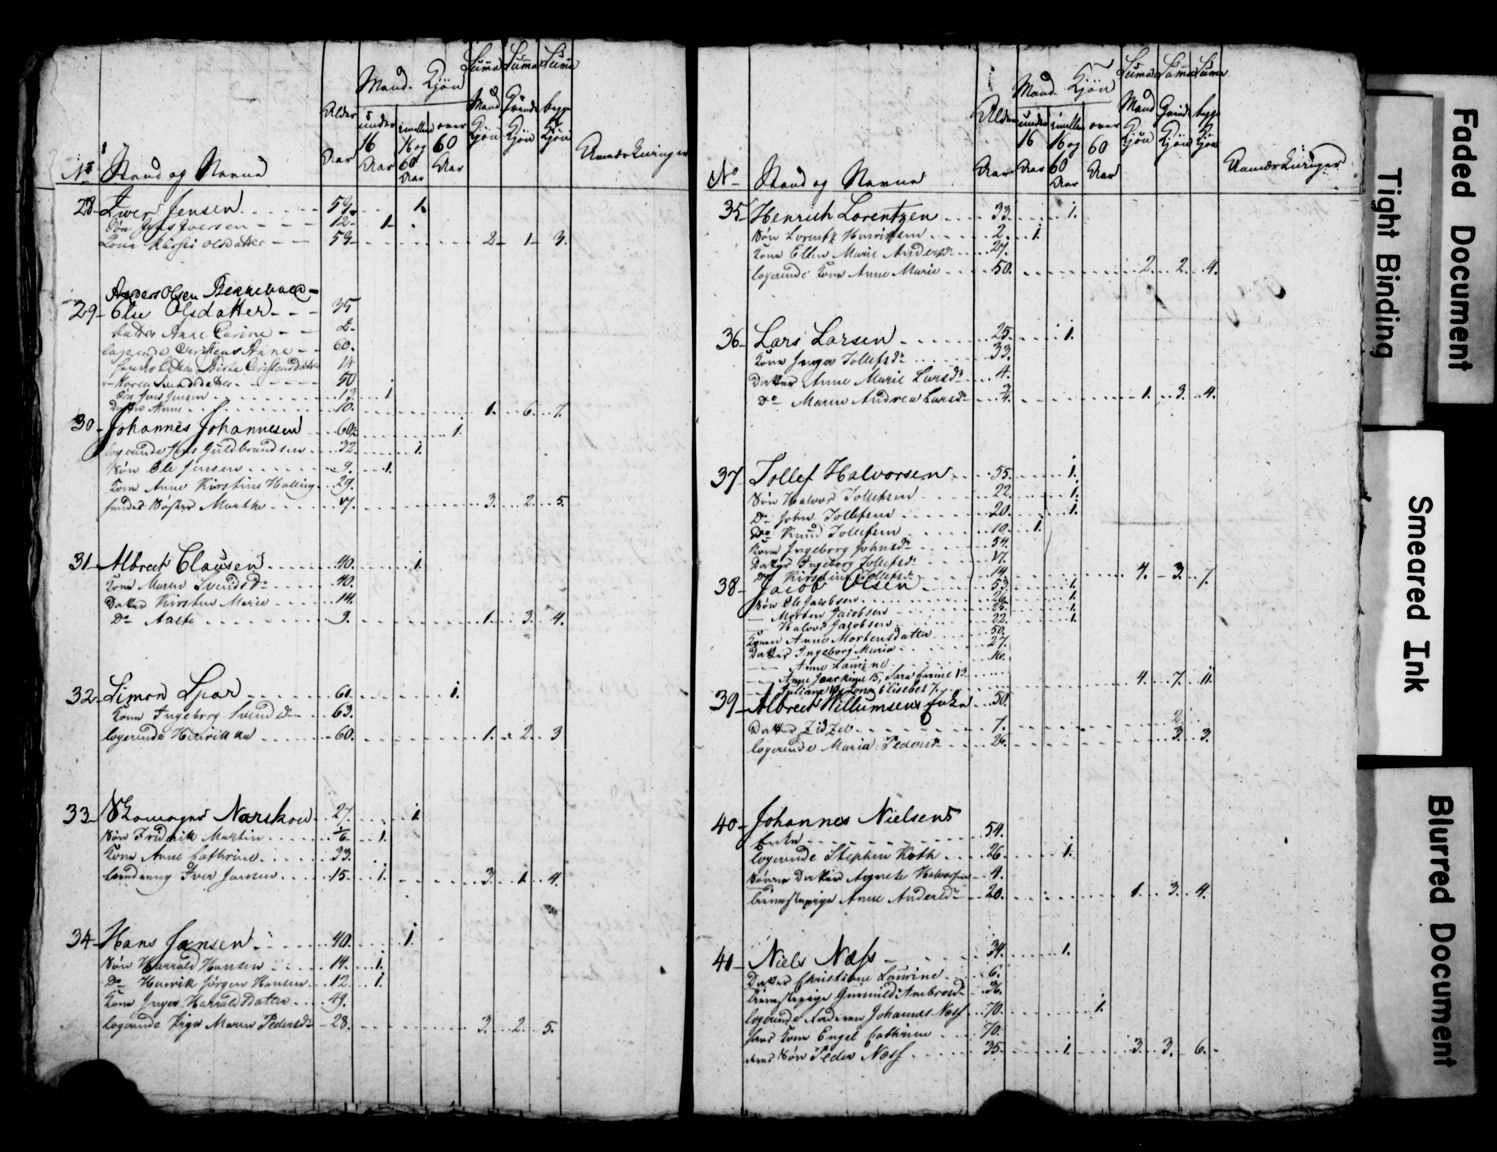 No Stand og Navne
Alder Aar
Mand Kjøn
under 16 Aar
imellem 16 og 60 Aar
over 60 Aar
Suma Mand Kjøn
Suma Qvinde Kjøn
Suma begge Kjøn
Anmærkninger
28 Iver Jensen 59 1
Søn Jens Iversen 12 1
Kone Kirsti Olsdatter 59 2 1 3
Anders Olsen
29 Else Olsdatter 35
Datter Anne Carine 2
logerende Anne 60
14
Karen 50
Søn Jens Jensen 13 1
Datter Anne 10 1 6 7
30 Johannes Johannesen 60 1
logerende Jens Guldbrandsen 32 1
Søn Ole Jensen 9 1
Kone Anne Kirstine Halling 29
hendes Søster Marthe 3 2 5
31 Albret Clausen 40 1
Kone Maren Svendsdr 40
Datter Kirsten Marie 14
Do Aaste 9 1 3 4
32 Simon Spar 61 1
Kone Ingeborg Svendsdr 63
logerende Henrikka 60 1 2 3
33 Skomager Narskou 27 1
Søn Fridrik Martin 1/2 1
Kone Anne Cathrine 33
Læredreng Iver Jensen 15 1 3 1 4
34 Hans Jansen 40 1
Søn Harrald Hansen 14 1
Do Henrik Jørgen Hansen 12 1
Kone Inger Harralds Datter 49
logerende Pige Maren Pedersdr 28 3 2 5
No Stand og Navne
Alder Aar
Mand Kjøn
under 16 Aar
imellem 16 og 60 Aar
over 60 Aar
Suma Mand Kjøn
Suma Qvinde Kjøn
Suma begge Kjøn
Anmærkninger
35 Henrich Lorentzen 33 1
Søn Lorentz Henrichsen 2 1
Kone Ellen Marie Andersdr 27
logerende Kone Anne Marie 50 2 2 4
36 Lars Larsen 25 1
Kone Inger Tollefsdr 33
Datter Anne Marie Larsdr 4
Do Maren Andrea Larsdr 2 1 3 4
37 Tollef Halvorsen 55 1
Søn Halvor Tollefsen 22 1
Do John Tollefsen 20 1
Do Knud Tollefsen 10 1
Kone Ingeborg Johnsdr 54
Datter Ingeborg Tollefsdr 17
Do Kirstine Tollefsdr 14 4 3 7
38 Jacob Olsen 53 1
Søn Ole Jacobsen 1
Morten Jacobsen 26 1
Halvor Jacobsen 22 1
Konen Anne Mortensdatter 50
Datter Ingeborg Maria 27
Anne Laurine 16
Anne Joackime 15, Sara Carine 13 4 7 11
Juliane Lena Elisebet 7
39 Albret Willumsens Enke 50
2
Datter Zidzel 7 3 3
logerende Maria Pedersdr 26
40 Johannes Nielsens
Enke 54
logerende Stephen Koth 26 1
Datter Agnete Halvorsen 4
tienestepige Anne Andersdr 20 1 3 4
41 Niels Næss 34 1
Datter Christiane Laurine 6
tienestepige Gunnild Ambrosdr 36
logerende Faderen Johannes Næss 70 1
hans Kone Engel Cathrine 70
deres Søn Peder Næss 35 1 3 3 6
Faded Document
Tight Binding
Smeared Ink
Blurred Document